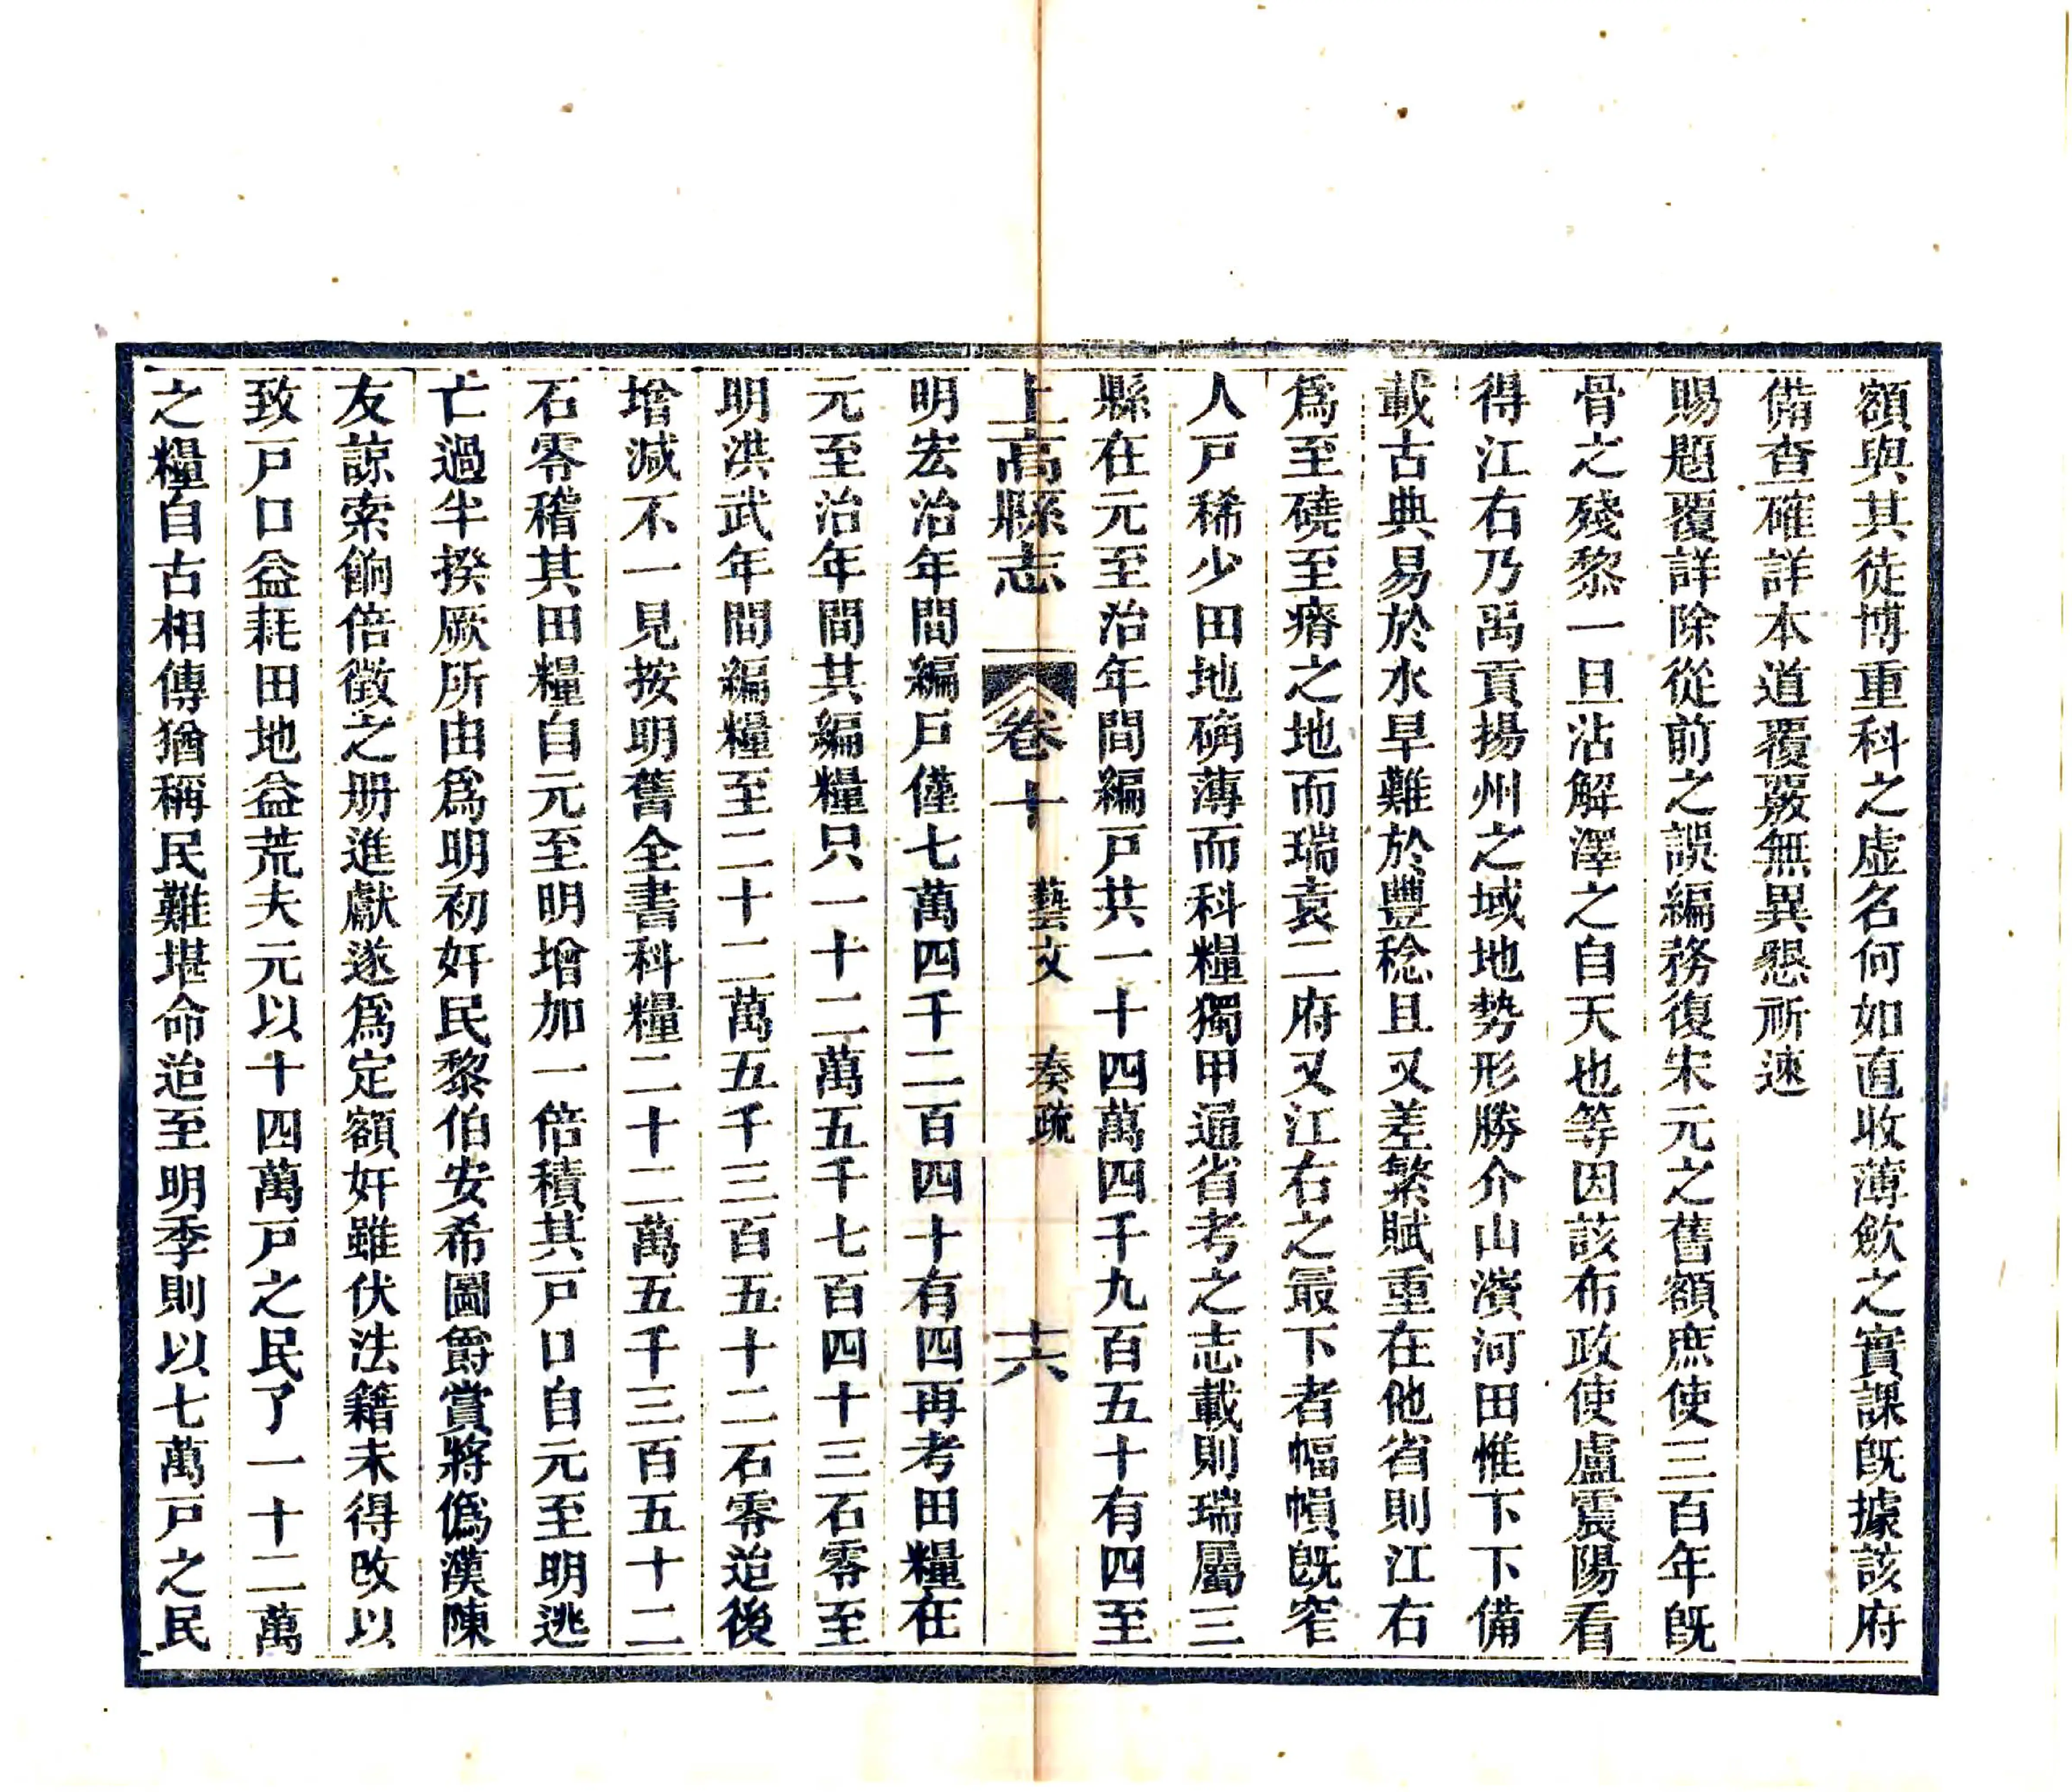 額與其徒博重科之虛名何如直收薄歛之實課旣據該府
備查確詳本道覆覈無異懇祈速
賜題覆詳除從前之誤編務復宋元之舊額庶使三百年旣
骨之殘黎一旦沾解澤之自天也等因該布政使盧震陽看
得江右乃禹貢揚州之域地勢形勝介山濱河田惟下下備
載古典易於水旱難於豐稔且又差繁賦重在他省則江右
爲至磽至瘠之地而瑞袁二府又江右之最下者幅幀旣窄
人戸稀少田地确薄而科糧獨甲通省考之志載則瑞屬三
縣在元至治年間編戸共一十四萬四千九百五十有四至
上高縣志 卷十 藝文 奏疏 十六
明宏治年間編戸僅七萬四千二百四十有四再考田糧在
元至治年間其編糧只一十二萬五千七百四十三石零至
明洪武年間編糧至二十二萬五千三百五十二石零迨後
增减不一見按明舊全書科糧二十二萬五千三百五十二
石零稽其田糧自元至明增加一倍積其戸口自元至明逃
亡過半揆厥所由爲明初奸民黎伯安希圖爵賞將僞漢陳
友諒索餉倍徵之册進獻遂爲定額奸雖伏法籍未得改以
致戸口益耗田地益荒夫元以十四萬戸之民了一十二萬
之糧自古相傳猶稱民難堪命迨至明季則以七萬戸之民